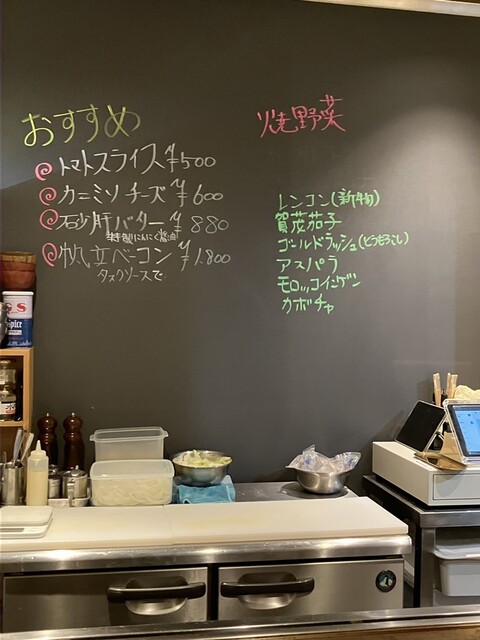 おすすめ
トマトスライス ¥500
カニミソチーズ ¥600
砂肝バター ¥880
特製にんにく醤油
帆立ベーコン ¥1.800
タスクソースで
焼野菜
レンコン(新物)
賀茂茄子
ゴールドラッシュ(とうもろこし)
アスパラ
モロッコインゲン
カボチャ